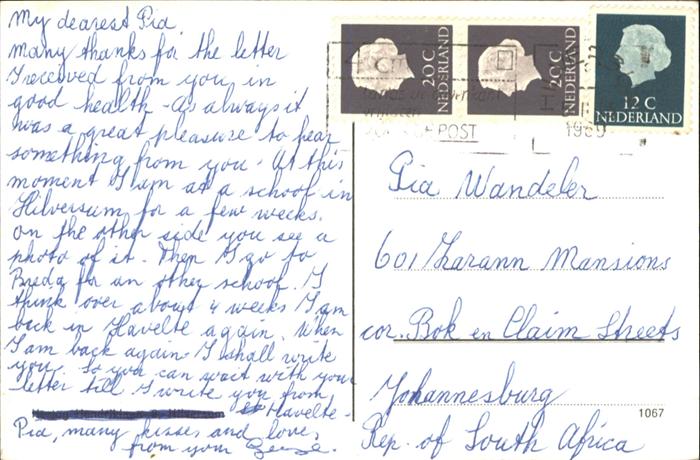 My dearest Pia,
many thanks for the letter
I received from you in
good health - As always it
was a great pleasure to hear
something from you. At this
moment I am at a school in
Hilversum for a few weeks.
on the other side you see a
photo of it. Then I go to
Breda for an other school. I
think over about 4 weeks I am
back in Havelte again. When
I am back again I shall write
you. So you can wait with your
letter till I write you from
Havelte.
Pia, many kisses and love,
from your
20 C
NEDERLAND
20 C
NEDERLAND
12 C
NEDERLAND
POST
1969
Pia Wandeler
601 Zarann Mansions
cor. Bok en Claim Streets
Johannesburg
Rep. of South Africa
1067